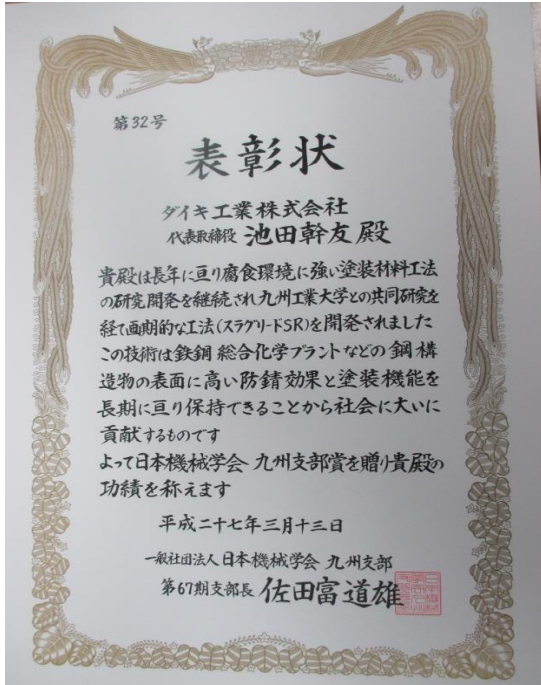 第32号
表彰状
ダイキ工業株式会社
代表取締役 池田幹友殿
貴殿は長年に亘り腐食環境に強い塗装材料工法
の研究開発を継続され九州工業大学との共同研究を
経て画期的な工法(スラグリードSR)を開発されました
この技術は鉄鋼 総合化学プラントなどの鋼構
造物の表面に高い防錆効果と塗装機能を
長期に亘り保持できることから社会に大いに
貢献するものです
よって日本機械学会 九州支部賞を贈り貴殿の
功績を称えます
平成二十七年三月十三日
一般社団法人日本機械学会 九州支部
第67期支部長 佐田富道雄